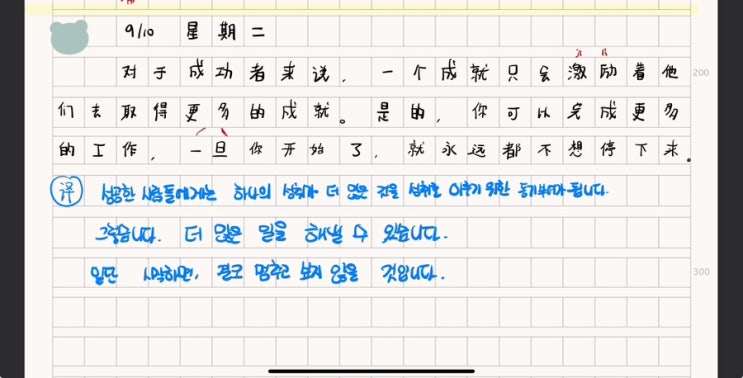 9/10 星期二
对于成功者来说，一个成就只会激励着他 200
们去取得更多的成就。是的，你可以完成更多
的工作，一旦你开始了，就永远都不想停下来。
译 성공한 사람들에게는 하나의 성취가 더 많은 것을 성취를 이루기 위한 동기부여가 됩니다.
그렇습니다. 더 많은 일을 해낼 수 있습니다.
일단 시작하면, 결코 멈추고 보지 않을 것입니다. 300